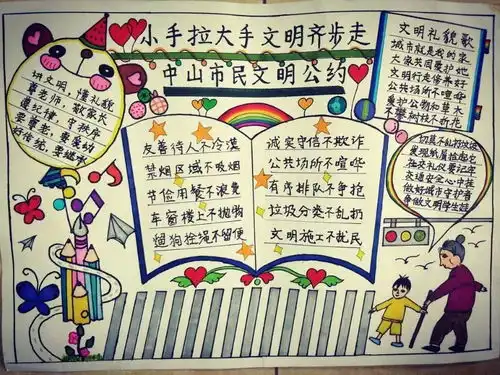 小手拉大手文明齐步走
中山市民文明公约
讲文明，懂礼貌
尊老师，敬家长
遵纪律，守秩序
要尊老，要爱幼
好传统，要继承
友善待人不冷漠
禁烟区域不吸烟
节俭用餐不浪费
车窗楼上不抛物
遛狗拴绳不留便
诚实守信不欺诈
公共场所不喧哗
有序排队不争抢
垃圾分类不乱扔
文明施工不扰民
文明礼貌歌
城市就是我的家
大家共同爱护她
文明行走修养好
公共场所不喧哗
爱护公物和草大
不攀树枝不折花
切莫乱扔
发现纸屑捡起它
社交礼仪要记牢
交通安全心中在
做好城市守护者
争做文明学生娃